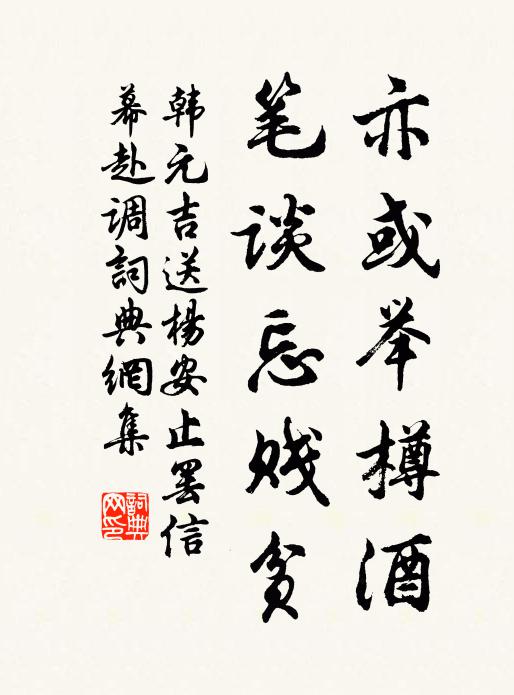 亦或举樽酒
笔谈忘贱贫
韩元吉送杨安止罢信
幕赴调词典網集
詞典
网印